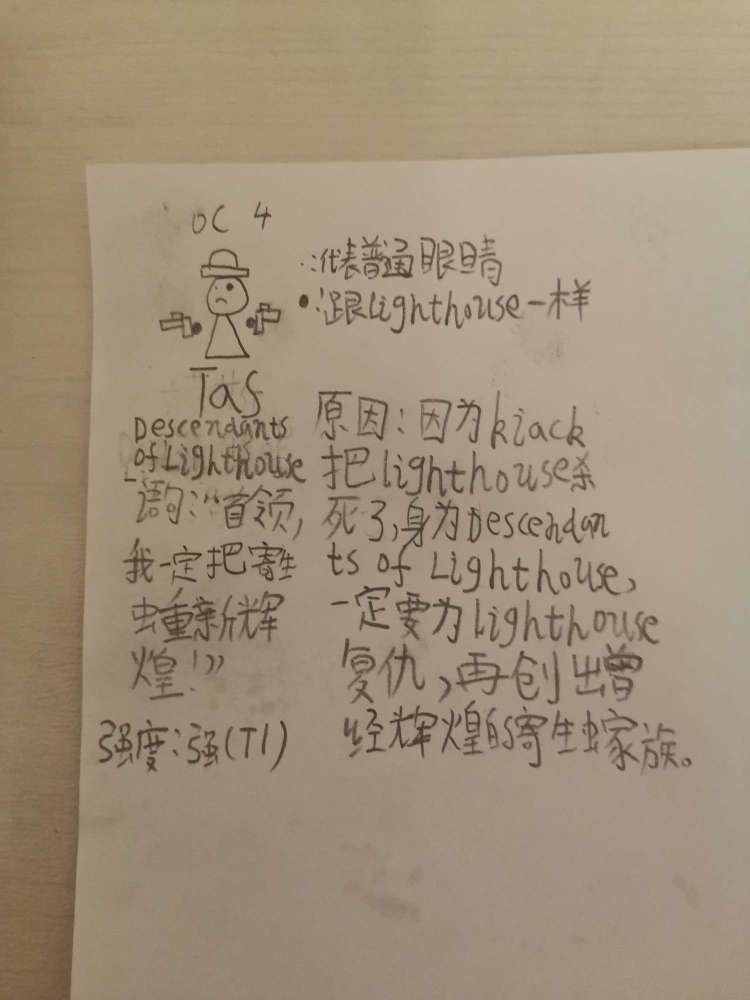 OC 4
·:代表普通眼睛
●:跟Lighthouse一样
Tas
Descendants
of Lighthouse
语句:“首领,
我一定把寄生
虫重新辉
煌!”
强度:强(T1)
原因:因为kiack
把lighthouse杀
死了,身为Descendan
ts of Lighthouse,
一定要为lighthouse
复仇,再创出曾
经辉煌的寄生虫家族。